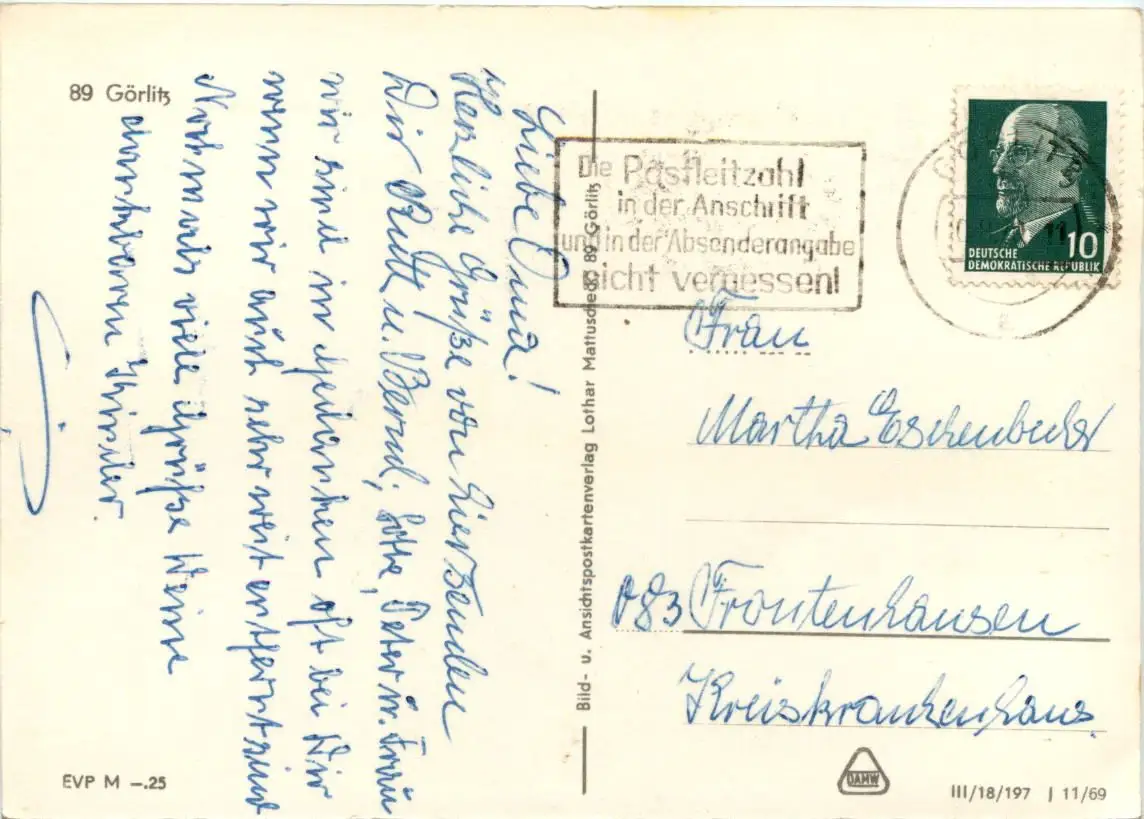 89 Görlitz
Liebe Oma!
Herzliche Grüße von hier senden
Dir Ruth u. Bernd, Lotte, Peter u. Frau
wir sind in Gedanken oft bei Dir
wenn wir auch sehr weit entfernt sind
Nochmals viele Grüße Deine
dankbaren Kinder.
EVP M –.25
Bild- u. Ansichtspostkartenverlag Lothar Mattuscheck 89 Görlitz
Die Postleitzahl
in der Anschrift
und in der Absenderangabe
nicht vergessen!
DEUTSCHE
DEMOKRATISCHE REPUBLIK
10
Frau
Martha Eschenbecher
083 Frontenhausen
Kreiskrankenhaus
DAMW
III/18/197 J 11/69